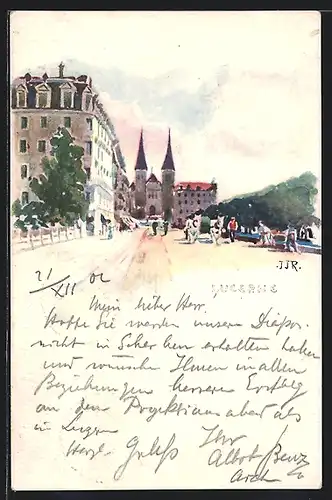 J.J.R.
LUCERNE
21/XII 02
Mein lieber Herr.
Hoffe Sie werden unsere Diapo-
nicht in Scherben erhalten haben
und wünsche Ihnen in allen
Beziehungen besseren Erfolg
an den Projektionsabend als
in Luzern
Herzl. Gruss Ihr
Albert Benz
Arch